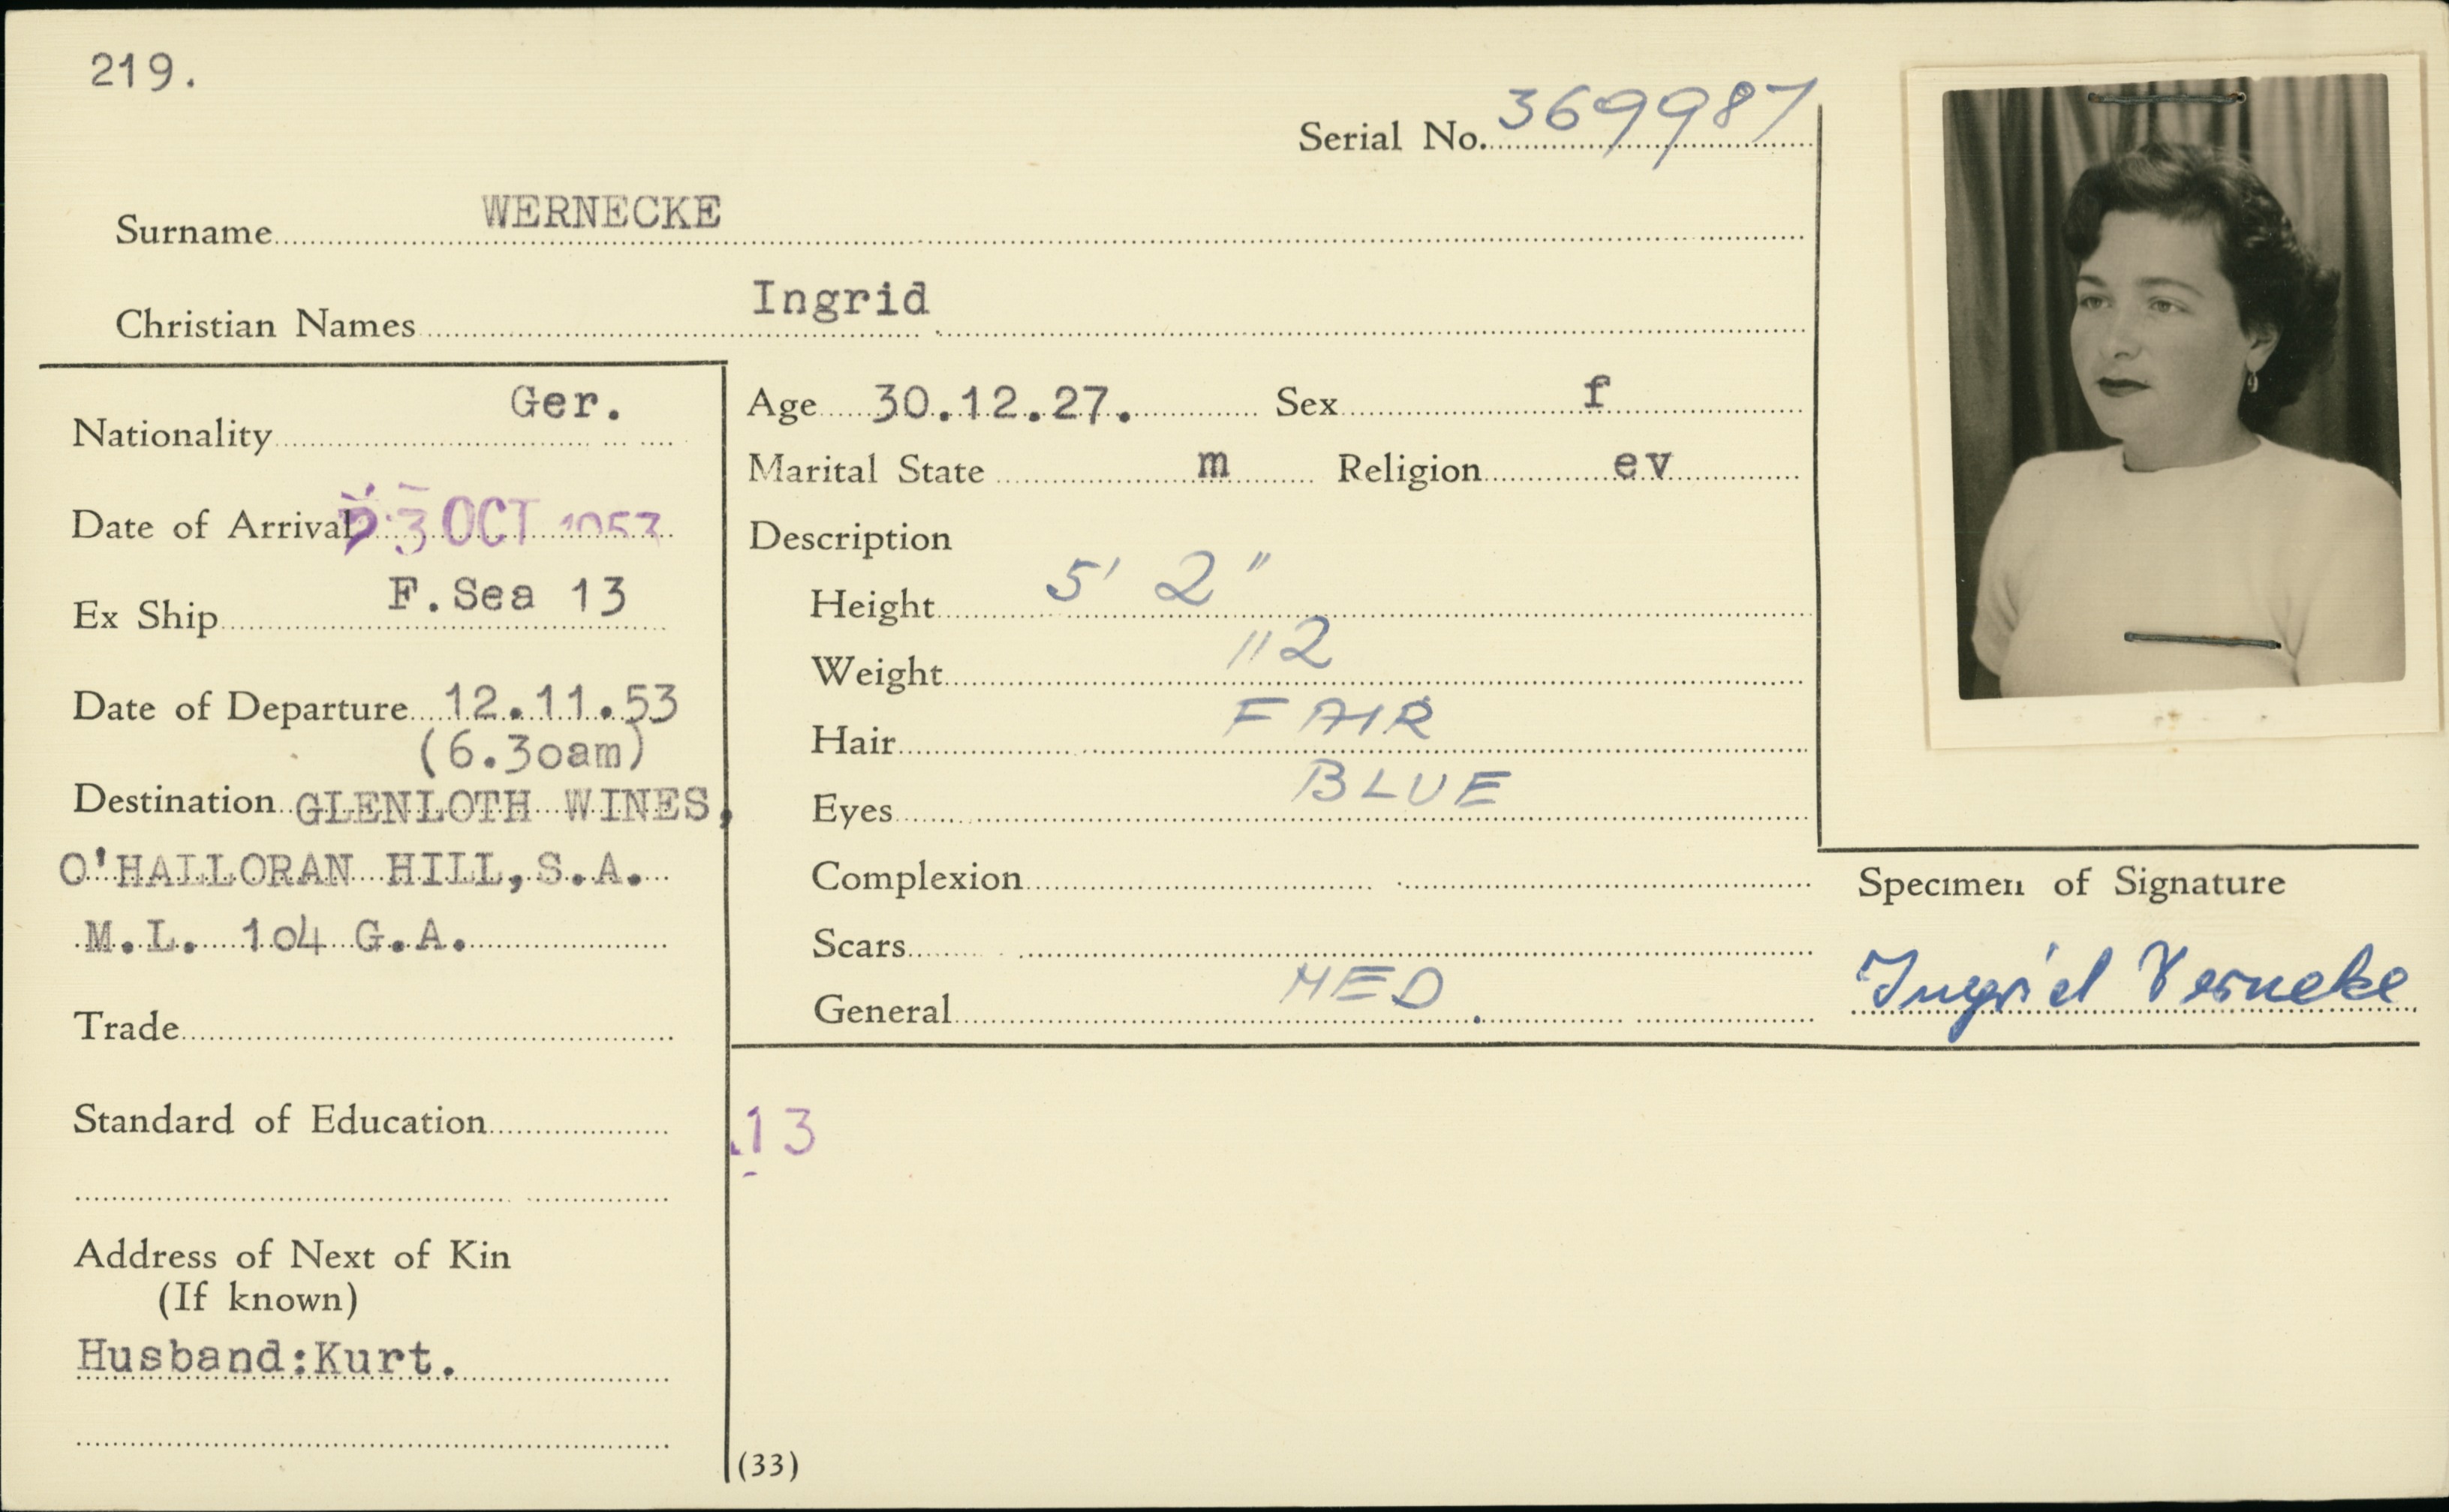 219.
Serial No. 369987
Surname WERNECKE
Christian Names Ingrid
Nationality Ger.
Date of Arrival 3 OCT 1953
Ex Ship F.Sea 13
Date of Departure 12.11.53
(6.3oam)
Destination GLENLOTH WINES,
O'HALLORAN HILL,S.A.
M.L. 1o4 G.A.
Trade
Standard of Education
Address of Next of Kin
(If known)
Husband:Kurt.
Age 30.12.27. Sex f
Marital State m Religion ev
Description
Height 5' 2"
Weight 112
Hair FAIR
Eyes BLUE
Complexion
Scars
General MED.
13
(33)
Specimen of Signature
Ingrid Werneke